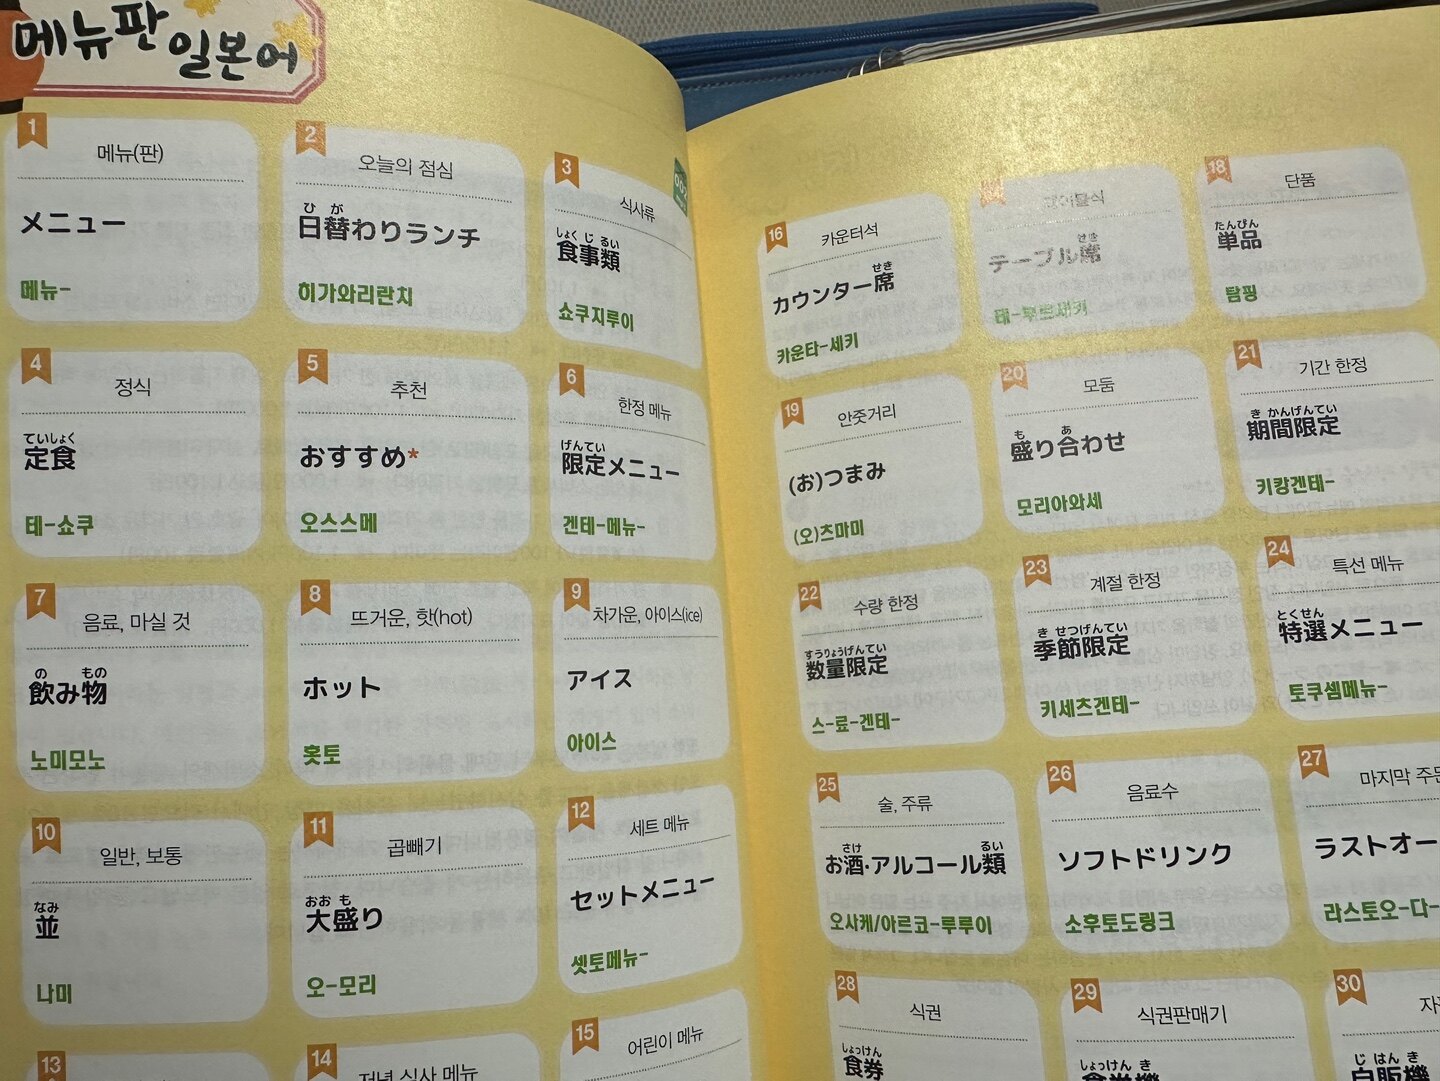 메뉴판 일본어
1
메뉴(판)
メニュー
메뉴-
2
오늘의 점심
ひ が
日替わりランチ
히가와리란치
3
식사류
しょく じ るい
食事類
쇼쿠지루이
4
정식
ていしょく
定食
테-쇼쿠
5
추천
おすすめ*
오스스메
6
한정 메뉴
げんてい
限定メニュー
겐테-메뉴-
7
음료, 마실 것
の もの
飲み物
노미모노
8
뜨거운, 핫(hot)
ホット
홋토
9
차가운, 아이스(ice)
アイス
아이스
10
일반, 보통
なみ
並
나미
11
곱빼기
おお も
大盛り
오-모리
12
세트 메뉴
セットメニュー
셋토메뉴-
13
14
저녁 식사 메뉴
15
어린이 메뉴
16
카운터석
せき
カウンター席
카운타-세키
테이블석
せき
テーブル席
테-부르세키
18
단품
たんぴん
単品
탐핑
19
안줏거리
(お)つまみ
(오)츠마미
20
모둠
も あ
盛り合わせ
모리아와세
21
기간 한정
き かんげんてい
期間限定
키캉겐테-
22
수량 한정
すうりょうげんてい
数量限定
스-료-겐테-
23
계절 한정
き せつげんてい
季節限定
키세츠겐테-
24
특선 메뉴
とくせん
特選メニュー
토쿠셈메뉴-
25
술, 주류
さけ るい
お酒·アルコール類
오사케/아르코-루루이
26
음료수
ソフトドリンク
소후토도링크
27
마지막 주문
ラストオー
라스토오-다-
28
식권
しょっけん
食券
29
식권판매기
しょっけん き
食券機
30
じ はん き
自販機